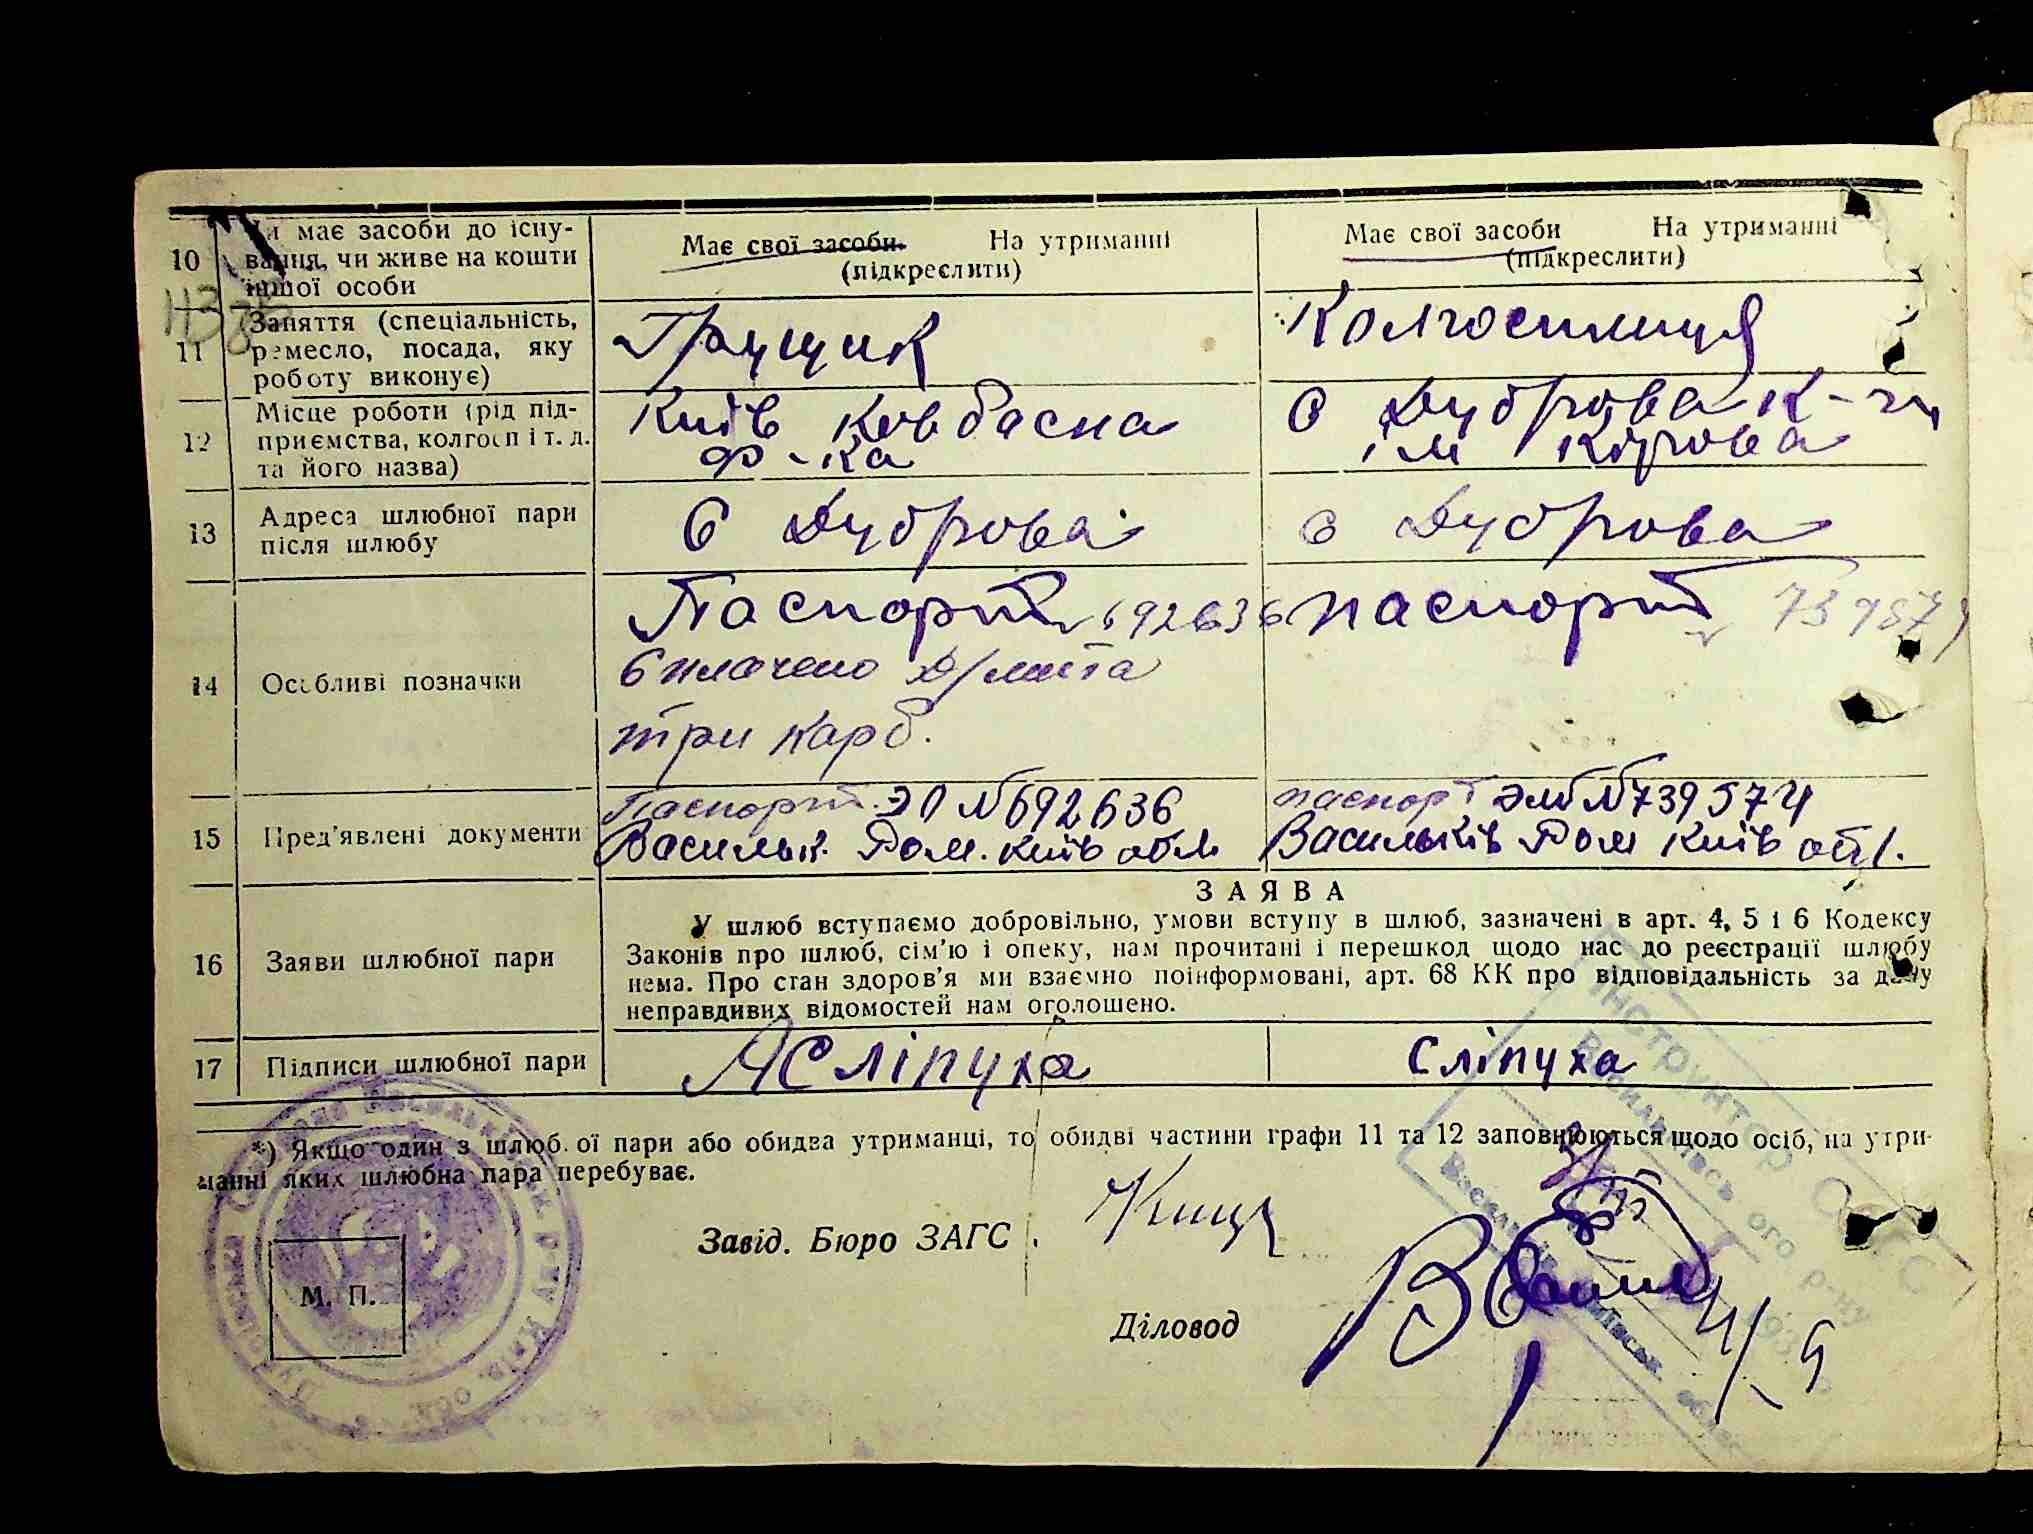 10 Чи має засоби до існу-
вання, чи живе на кошти
іншої особи
Має свої засоби. На утриманні
(підкреслити)
Має свої засоби На утриманні
(підкреслити)
11 Заняття (спеціальність,
ремесло, посада, яку
роботу виконує)
Грущик
Колгоспниця
12 Місце роботи (рід під-
приємства, колгосп і т. д.
та його назва)
Київ Ковбасна
ф-ка
с Дуброва к-п
ім Кірова
13 Адреса шлюбної пари
після шлюбу
с Дуброва
с Дуброва
14 Особливі позначки
Паспорт 692636
три карб.
паспорт
15 Пред'явлені документи
Паспорт ЭП № 692636
Васильк. Ром. київ обл
паспорт № 739574
Васильків Ром Київ обл.
16 Заяви шлюбної пари
ЗАЯВА
У шлюб вступаємо добровільно, умови вступу в шлюб, зазначені в арт. 4, 5 і 6 Кодексу
Законів про шлюб, сім'ю і опеку, нам прочитані і перешкод щодо нас до реєстрації шлюбу
нема. Про стан здоров'я ми взаємно поінформовані, арт. 68 КК про відповідальність за дачу
неправдивих відомостей нам оголошено.
17 Підписи шлюбної пари
АСліпуха
Сліпуха
*) Якщо один з шлюбної пари або обидва утриманці, то обидві частини графи 11 та 12 заповнюються щодо осіб, на утри-
манні яких шлюбна пара перебуває.
Завід. Бюро ЗАГС
М. П.
Діловод
Інструктор ОАГС
Васильківського р-ну